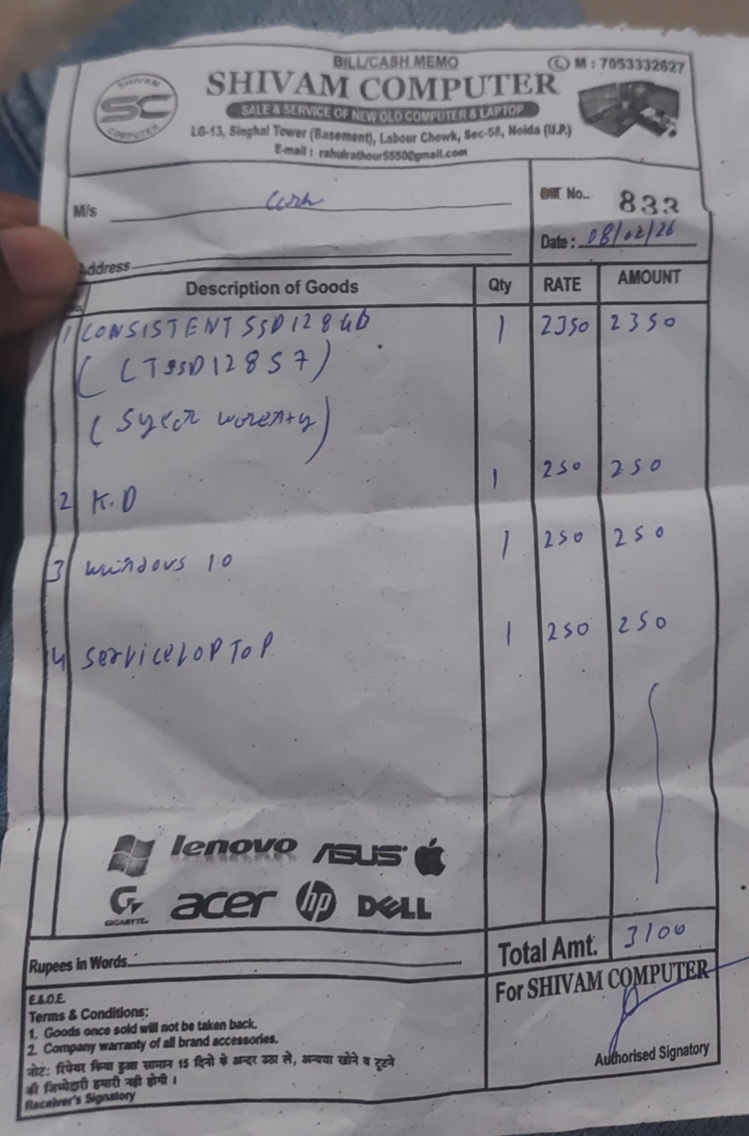 BILL/CASH MEMO
M : 7053332827
SHIVAM COMPUTER
SHIVAM
SC
COMPUTER
SALE & SERVICE OF NEW OLD COMPUTER & LAPTOP
LG-13, Singhal Tower (Basement), Labour Chowk, Sec-58, Noida (U.P.)
E-mail : rahulrathour5550@gmail.com
M/s Cash
No.. 833
Address
Date : 08/02/26
Description of Goods Qty RATE AMOUNT
1 CONSISTENT SSD 128 GB 1 2350 2350
(CTSSD128S7)
(5year worenty)
2 K.D 1 250 250
3 windows 10 1 250 250
4 Service LOPTOP 1 250 250
lenovo ASUS
GIGABYTE acer hp DELL
Total Amt. 3100
Rupees in Words
For SHIVAM COMPUTER
E.&.O.E.
Terms & Conditions:
1. Goods once sold will not be taken back.
2. Company warranty of all brand accessories.
नोट: रिपेयर किया हुआ सामान 15 दिनों के अन्दर उठा ले, अन्यथा खोने व टूटने
की जिम्मेदारी हमारी नही होगी ।
Receiver's Signatory
Authorised Signatory